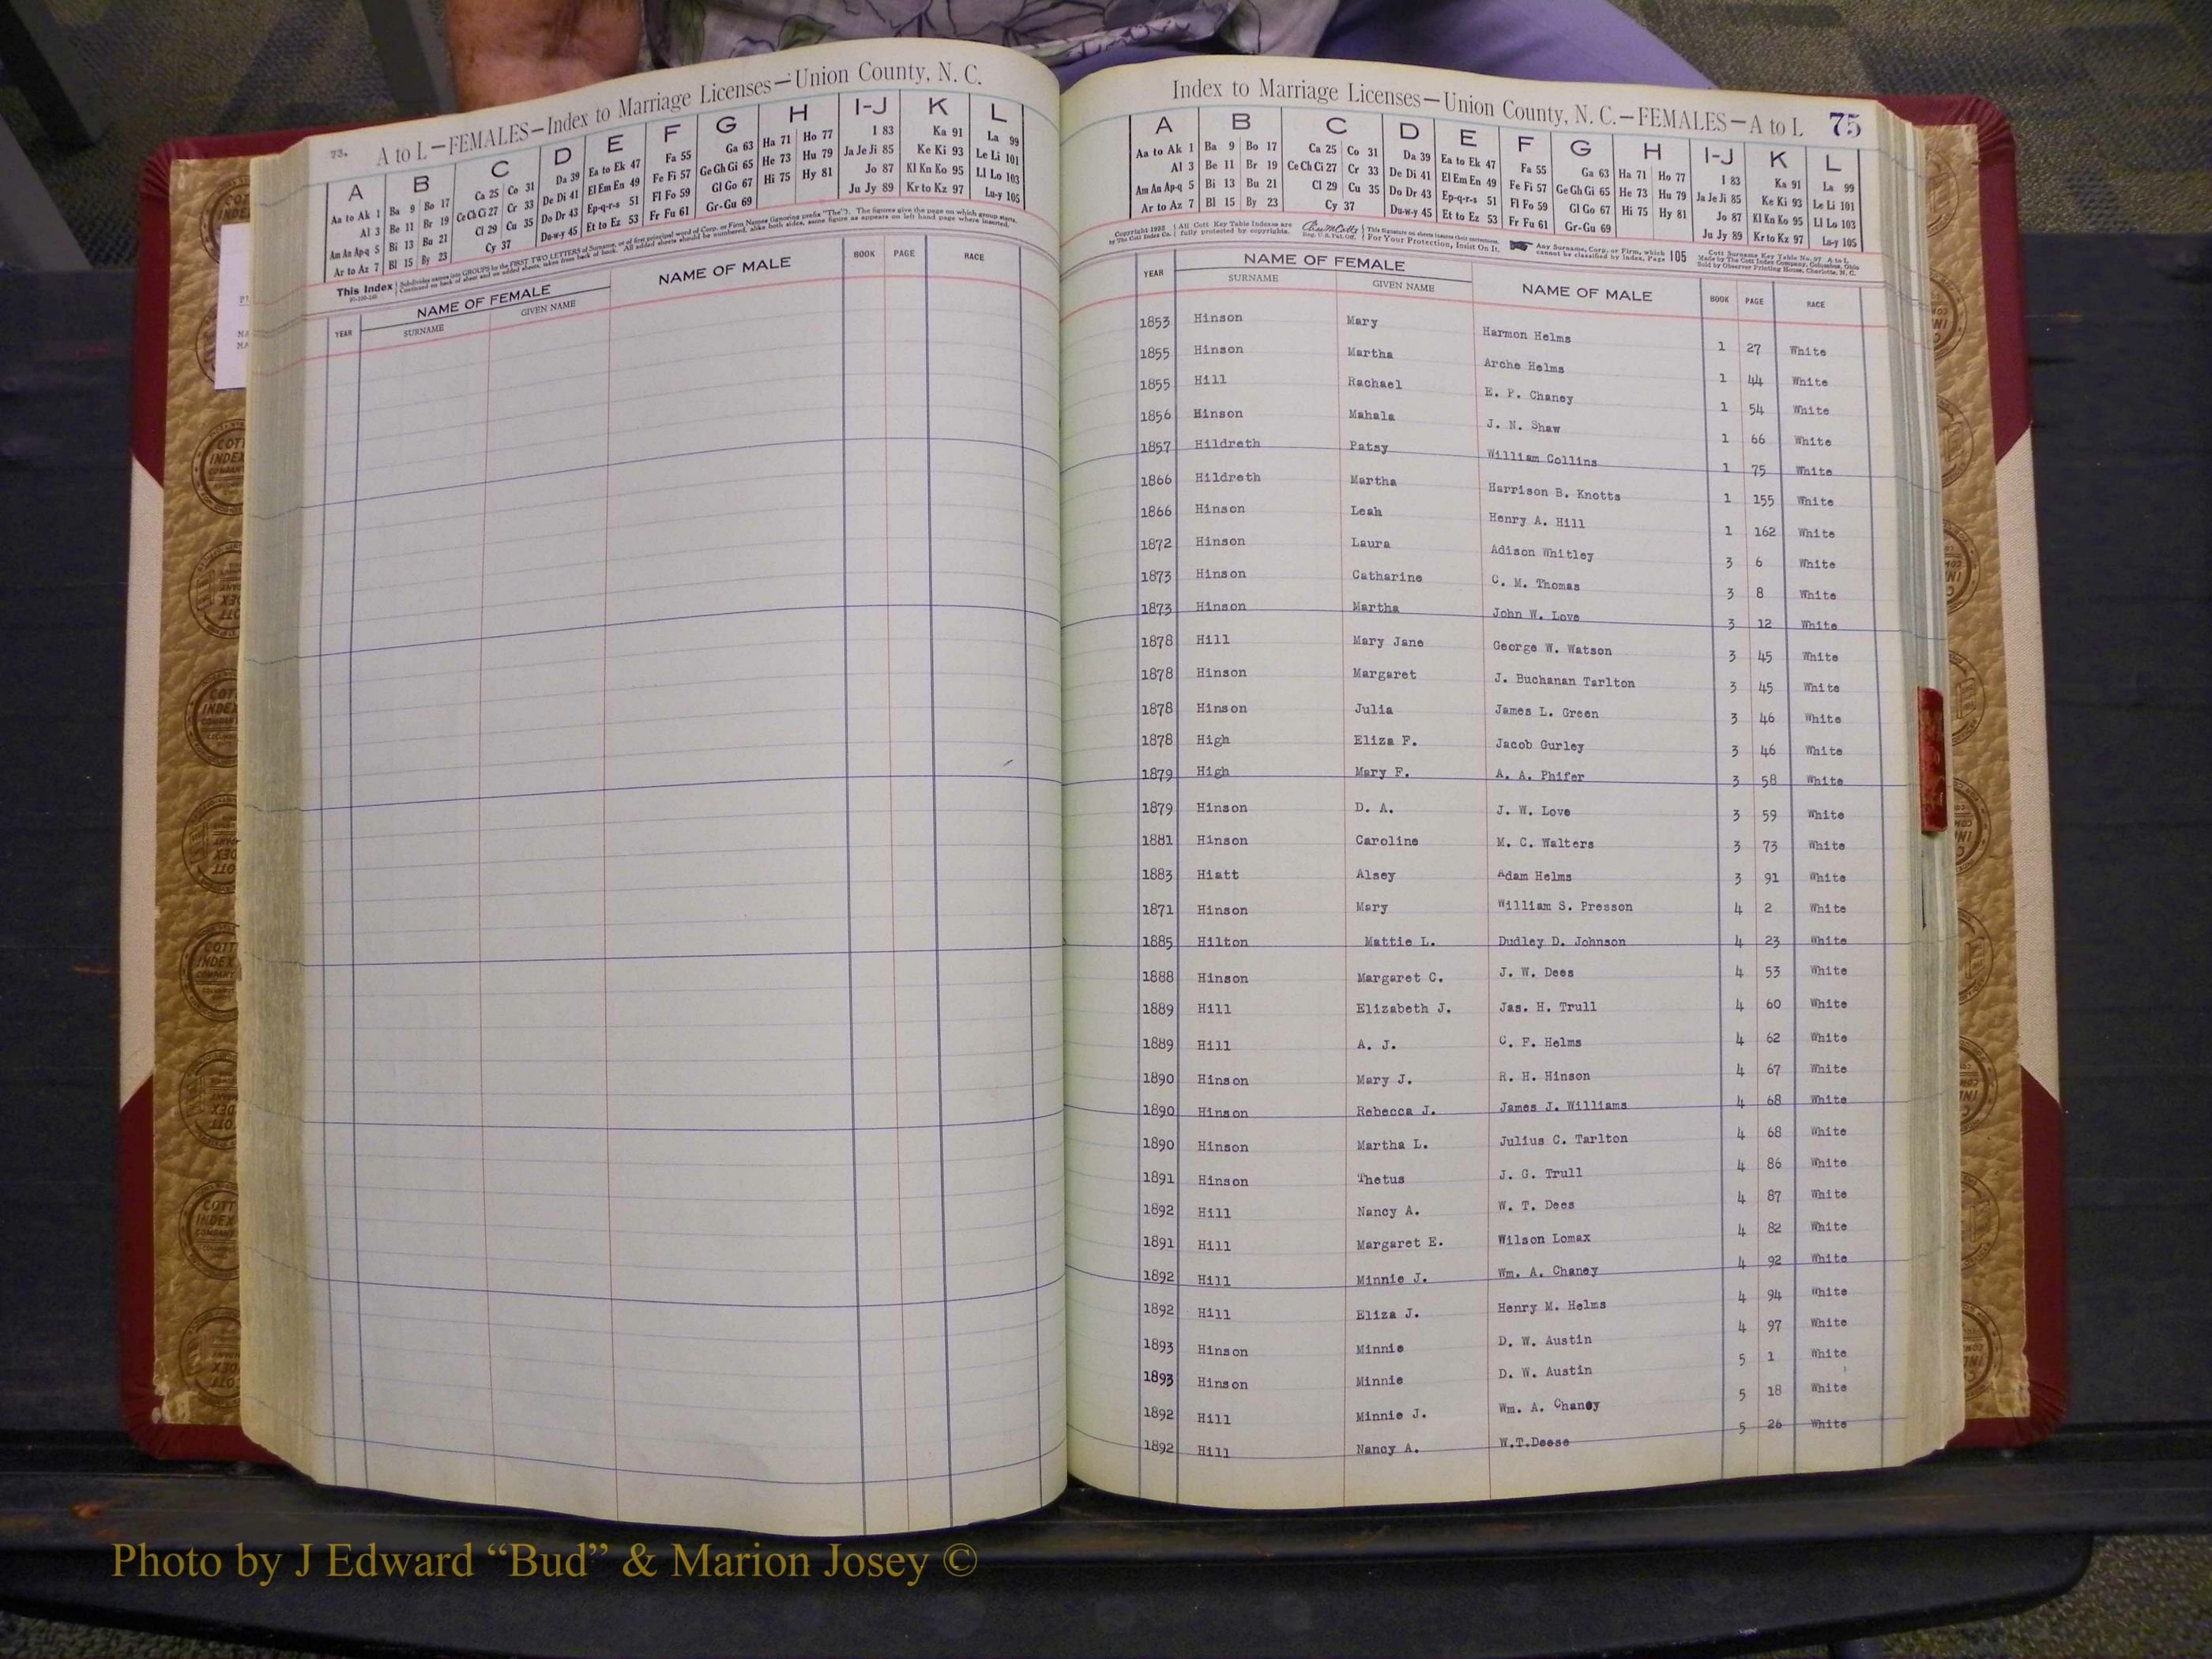 73. A to L—FEMALES—Index to Marriage Licenses—Union County, N. C.
A B C D E F G H I-J K L
Aa to Ak 1 Ba 9 Bo 17 Ca 25 Co 31 Da 39 Ea to Ek 47 Fa 55 Ga 63 Ha 71 Ho 77 I 83 Ka 91 La 99
Al 3 Be 11 Br 19 Ce Ch Ci 27 Cr 33 De Di 41 El Em En 49 Fe Fi 57 Ge Gh Gi 65 He 73 Hu 79 Ja Je Ji 85 Ke Ki 93 Le Li 101
Am An Ap-q 5 Bi 13 Bu 21 Cl 29 Cu 35 Do Dr 43 Ep-q-r-s 51 Fl Fo 59 Gl Go 67 Hi 75 Hy 81 Jo 87 Kl Kn Ko 95 Ll Lo 103
Ar to Az 7 Bl 15 By 23 Cy 37 Du-w-y 45 Et to Ez 53 Fr Fu 61 Gr-Gu 69 Ju Jy 89 Kr to Kz 97 Lu-y 105
This Index Subdivides names into GROUPS by the FIRST TWO LETTERS of Surname, or of first principal word of Corp. or Firm Names (ignoring prefix "The"). The figures give the page on which group starts.
Continued on back of sheet and on added sheets, taken from back of book. All added sheets should be numbered, alike both sides, same figure as appears on left hand page where inserted.
YEAR NAME OF FEMALE NAME OF MALE BOOK PAGE RACE
SURNAME GIVEN NAME
Index to Marriage Licenses—Union County, N. C.—FEMALES—A to L 75
A B C D E F G H I-J K L
Aa to Ak 1 Ba 9 Bo 17 Ca 25 Co 31 Da 39 Ea to Ek 47 Fa 55 Ga 63 Ha 71 Ho 77 I 83 Ka 91 La 99
Al 3 Be 11 Br 19 Ce Ch Ci 27 Cr 33 De Di 41 El Em En 49 Fe Fi 57 Ge Gh Gi 65 He 73 Hu 79 Ja Je Ji 85 Ke Ki 93 Le Li 101
Am An Ap-q 5 Bi 13 Bu 21 Cl 29 Cu 35 Do Dr 43 Ep-q-r-s 51 Fl Fo 59 Gl Go 67 Hi 75 Hy 81 Jo 87 Kl Kn Ko 95 Ll Lo 103
Ar to Az 7 Bl 15 By 23 Cy 37 Du-w-y 45 Et to Ez 53 Fr Fu 61 Gr-Gu 69 Ju Jy 89 Kr to Kz 97 Lu-y 105
All Cott Key Table Indexes are fully protected by copyrights. This Signature on sheets insures their correctness. For Your Protection, Insist On It. Any Surname, Corp. or Firm, which cannot be classified by Index, Page 105
Cott Surname Key Table No. 97 A to L Made by The Cott Index Company, Columbus, Ohio Sold by Observer Printing House, Charlotte, N. C.
YEAR NAME OF FEMALE NAME OF MALE BOOK PAGE RACE
SURNAME GIVEN NAME
1853 Hinson Mary Harmon Helms 1 27 White
1855 Hinson Martha Arche Helms 1 44 White
1855 Hill Rachael E. P. Chaney 1 54 White
1856 Hinson Mahala J. N. Shaw 1 66 White
1857 Hildreth Patsy William Collins 1 75 White
1866 Hildreth Martha Harrison B. Knotts 1 155 White
1866 Hinson Leah Henry A. Hill 1 162 White
1872 Hinson Laura Adison Whitley 3 6 White
1873 Hinson Catharine C. M. Thomas 3 8 White
1873 Hinson Martha John W. Love 3 12 White
1878 Hill Mary Jane George W. Watson 3 45 White
1878 Hinson Margaret J. Buchanan Tarlton 3 45 White
1878 Hinson Julia James L. Green 3 46 White
1878 High Eliza F. Jacob Gurley 3 46 White
1879 High Mary F. A. A. Phifer 3 58 White
1879 Hinson D. A. J. W. Love 3 59 White
1881 Hinson Caroline M. C. Walters 3 73 White
1883 Hiatt Alsey Adam Helms 3 91 White
1871 Hinson Mary William S. Presson 4 2 White
1885 Hilton Mattie L. Dudley D. Johnson 4 23 White
1888 Hinson Margaret C. J. W. Dees 4 53 White
1889 Hill Elizabeth J. Jas. H. Trull 4 60 White
1889 Hill A. J. C. F. Helms 4 62 White
1890 Hinson Mary J. R. H. Hinson 4 67 White
1890 Hinson Rebecca J. James J. Williams 4 68 White
1890 Hinson Martha L. Julius C. Tarlton 4 68 White
1891 Hinson Thetus J. G. Trull 4 86 White
1892 Hill Nancy A. W. T. Dees 4 87 White
1891 Hill Margaret E. Wilson Lomax 4 82 White
1892 Hill Minnie J. Wm. A. Chaney 4 92 White
1892 Hill Eliza J. Henry M. Helms 4 94 White
1893 Hinson Minnie D. W. Austin 4 97 White
1893 Hinson Minnie D. W. Austin 5 1 White
1892 Hill Minnie J. Wm. A. Chaney 5 18 White
1892 Hill Nancy A. W.T.Deese 5 26 White
Photo by J Edward “Bud” & Marion Josey ©